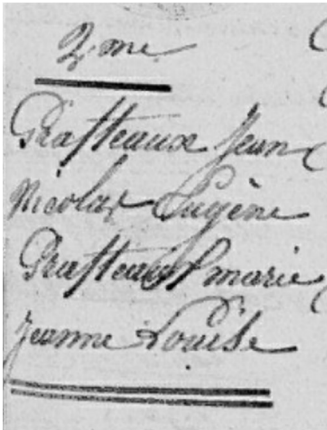 2me
Prasteaux Jean
Nicolas Eugène
Prasteaux marie
Jeanne Louise